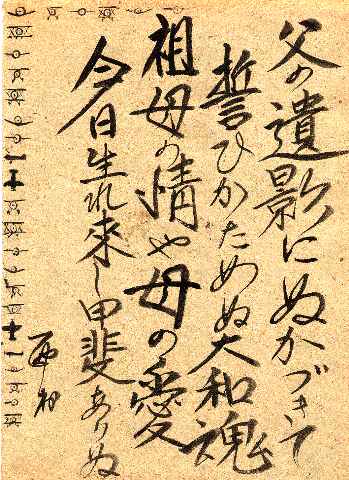 父の遺影にぬかづきて
誓ひかためぬ大和魂
祖母の情や母の愛
今日生れ來し甲斐ありぬ